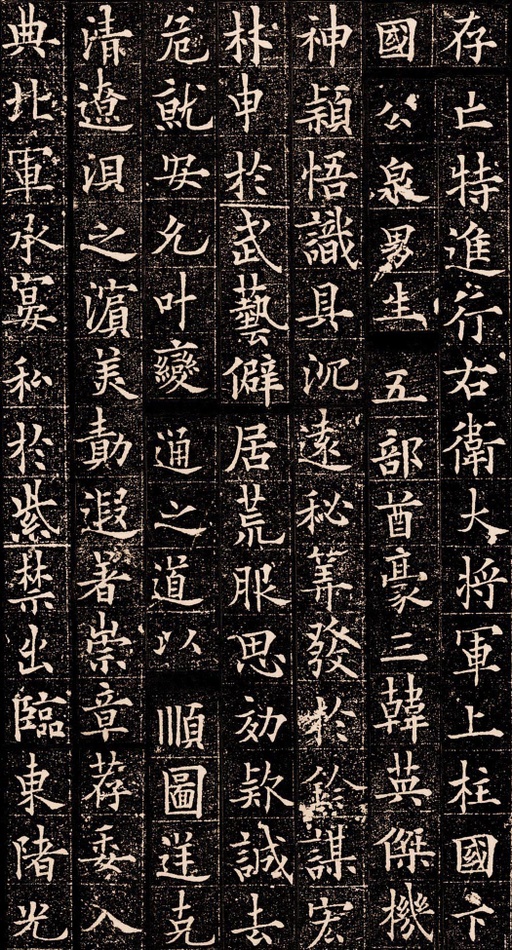 存亡特進行右衛大将軍上柱國卞
國公泉男生五部酋豪三韓英傑機
神穎悟識具沉遠秘筭發於鈐謀宏
材申於武藝僻居荒服思効款誠去
危就安允叶變通之道以順圖逆克
清遼浿之濵美勣遐著崇章荐委入
典北軍承宴私於紫禁出臨東陼光